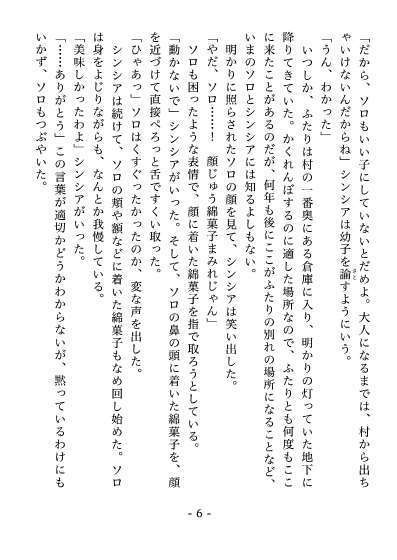 「だから、ソロもいい子にしていないとだめよ。大人になるまでは、村から出ち
ゃいけないんだからね」シンシアは幼子を諭すようにいう。
さと
「うん、わかった」
いつしか、ふたりは村の一番奥にある倉庫に入り、明かりの灯っていた地下に
降りてきていた。かくれんぼするのに適した場所なので、ふたりとも何度もここ
に来たことがあるのだが、何年も後にここがふたりの別れの場所になることなど、
いまのソロとシンシアには知るよしもない。
明かりに照らされたソロの顔を見て、シンシアは笑い出した。
「やだ、ソロ……！　顔じゅう綿菓子まみれじゃん」
ソロも困ったような表情で、顔に着いた綿菓子を指で取ろうとしている。
「動かないで」シンシアがいった。そして、ソロの鼻の頭に着いた綿菓子を、顔
を近づけて直接ぺろっと舌ですくい取った。
「ひゃあっ」ソロはくすぐったかったのか、変な声を出した。
シンシアは続けて、ソロの頬や額などに着いた綿菓子もなめ回し始めた。ソロ
は身をよじりながらも、なんとか我慢している。
「美味しかったわよ」シンシアがいった。
「……ありがとう」この言葉が適切かどうかわからないが、黙っているわけにも
いかず、ソロもつぶやいた。
- 6 -